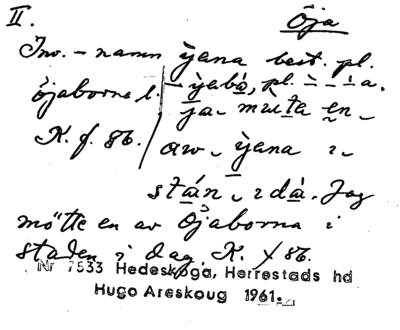 II. Öja
Inv. - namn ÿana best. pl.
öjaborna l. - ÿabá, pl. ̀ - ̀ a.
K. f. 86. ja- mùta en
aw ÿana ı
stán ı dà. Jag
mötte en av Öjaborna i
staden i dag. K. f 86.
Nr 7533 Hedeskoga, Herrestads hd
Hugo Areskoug 1961.